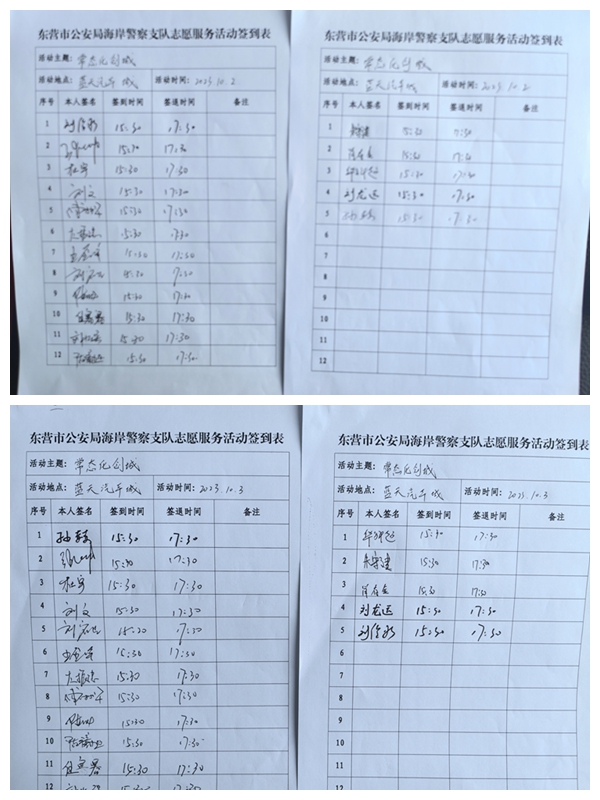 东营市公安局海岸警察支队志愿服务活动签到表
活动主题： 常态化创城
活动地点： 蓝天汽车城 活动时间：2023.10.2
序号 本人签名 签到时间 签退时间 备注
1 15:30 17:30
2 15:30 17:30
3 杜宇 15:30 17:30
4 刘文 15:30 17:30
5 15:30 17:30
6 15:30 17:30
7 15:30 17:30
8 15:30 17:30
9 15:30 17:30
10 15:30 17:30
11 15:30 17:30
12 15:30 17:30
东营市公安局海岸警察支队志愿服务活动签到表
活动主题： 常态化创城
活动地点： 蓝天汽车城 活动时间：2023.10.2
序号 本人签名 签到时间 签退时间 备注
1 15:30 17:30
2 15:30 17:30
3 15:30 17:30
4 刘龙远 15:30 17:30
5 15:30 17:30
6
7
8
9
10
11
12
东营市公安局海岸警察支队志愿服务活动签到表
活动主题： 常态化创城
活动地点： 蓝天汽车城 活动时间：2023.10.3
序号 本人签名 签到时间 签退时间 备注
1 15:30 17:30
2 15:30 17:30
3 杜宇 15:30 17:30
4 刘文 15:30 17:30
5 15:30 17:30
6 15:30 17:30
7 15:30 17:30
8 15:30 17:30
9 15:30 17:30
10 15:30 17:30
11 15:30 17:30
东营市公安局海岸警察支队志愿服务活动签到表
活动主题： 常态化创城
活动地点： 蓝天汽车城 活动时间：2023.10.3
序号 本人签名 签到时间 签退时间 备注
1 15:30 17:30
2 15:30 17:30
3 15:30 17:30
4 刘龙远 15:30 17:30
5 15:30 17:30
6
7
8
9
10
11
12